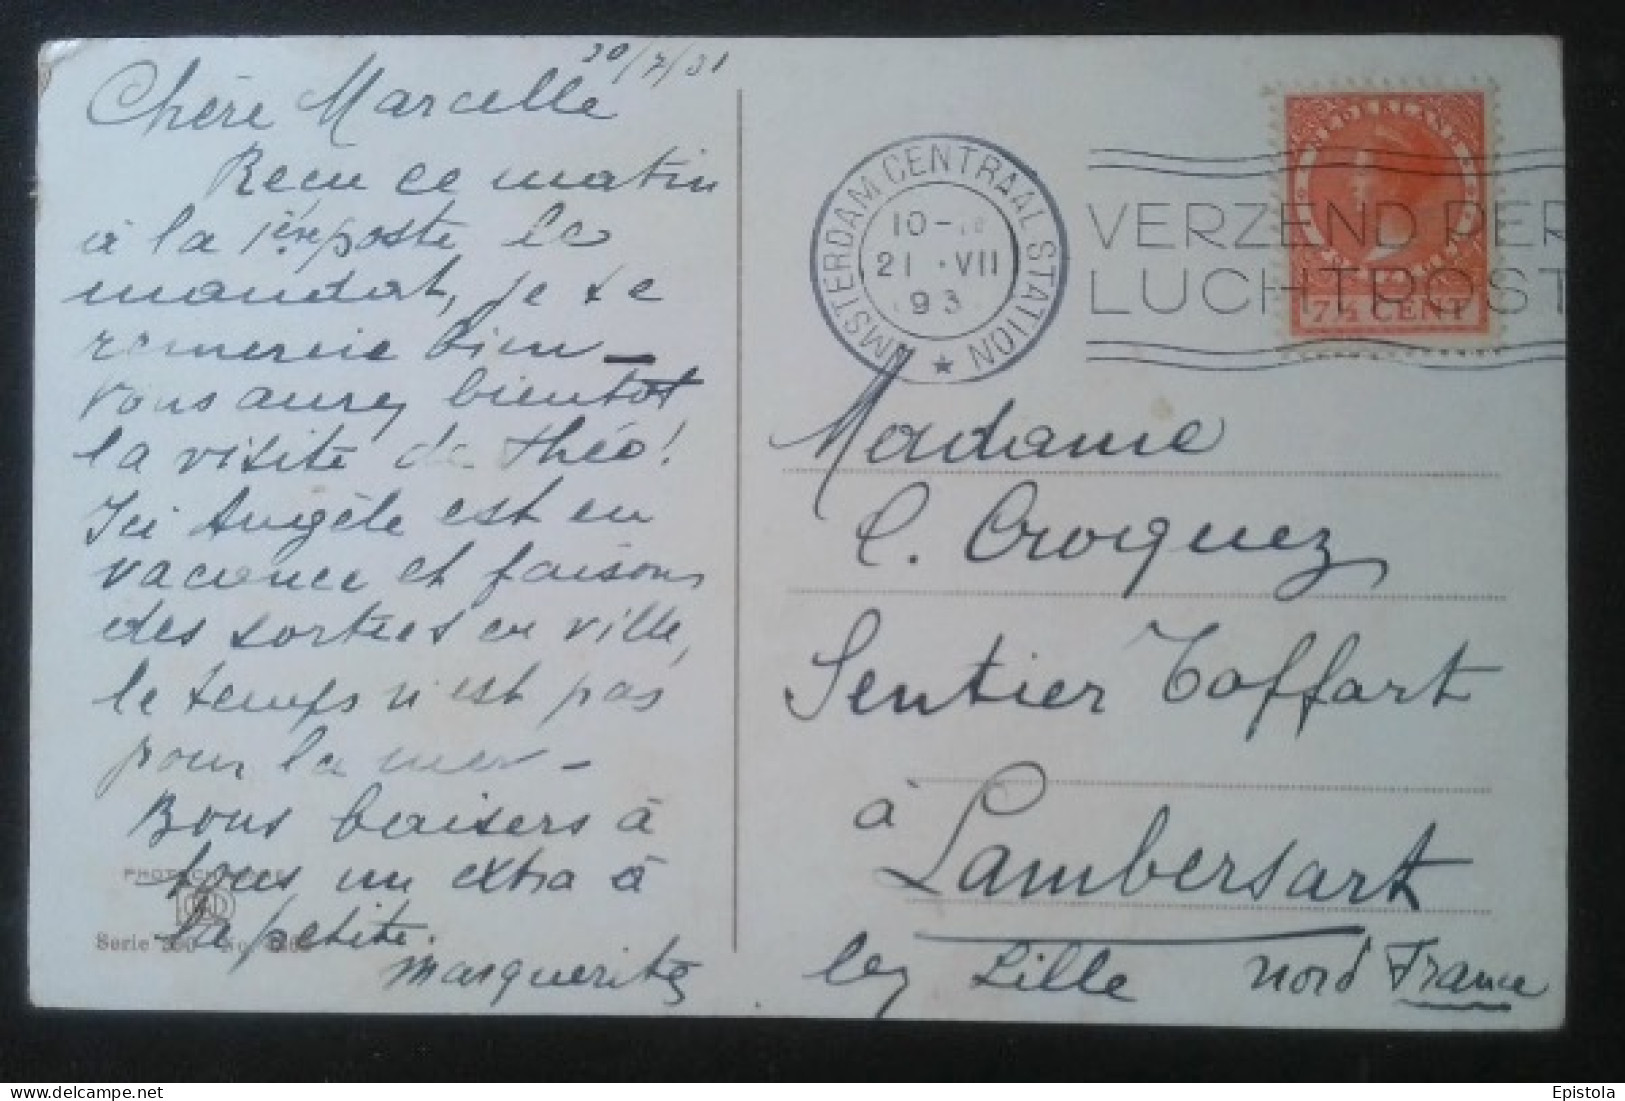 20/7/31
Chère Marcelle
Recu ce matin
à la 1ère poste le
mandat, je te
remercie bien –
Vous aurez bientot
la visite de théo!
Ici Angèle est en
vacance et faisons
des sorties en ville,
le temps n'est pas
pour la mer –
Bons baisers à
tous un extra à
la petite.
Marguerite
Serie No
AMSTERDAM CENTRAAL STATION
10-
21 .VII
93
VERZEND PER
LUCHTPOST
NEDERLAND
7½ CENT
Madame
C. Croquez
Sentier Toffart
à Lambersart
lez Lille Nord France
Epistola